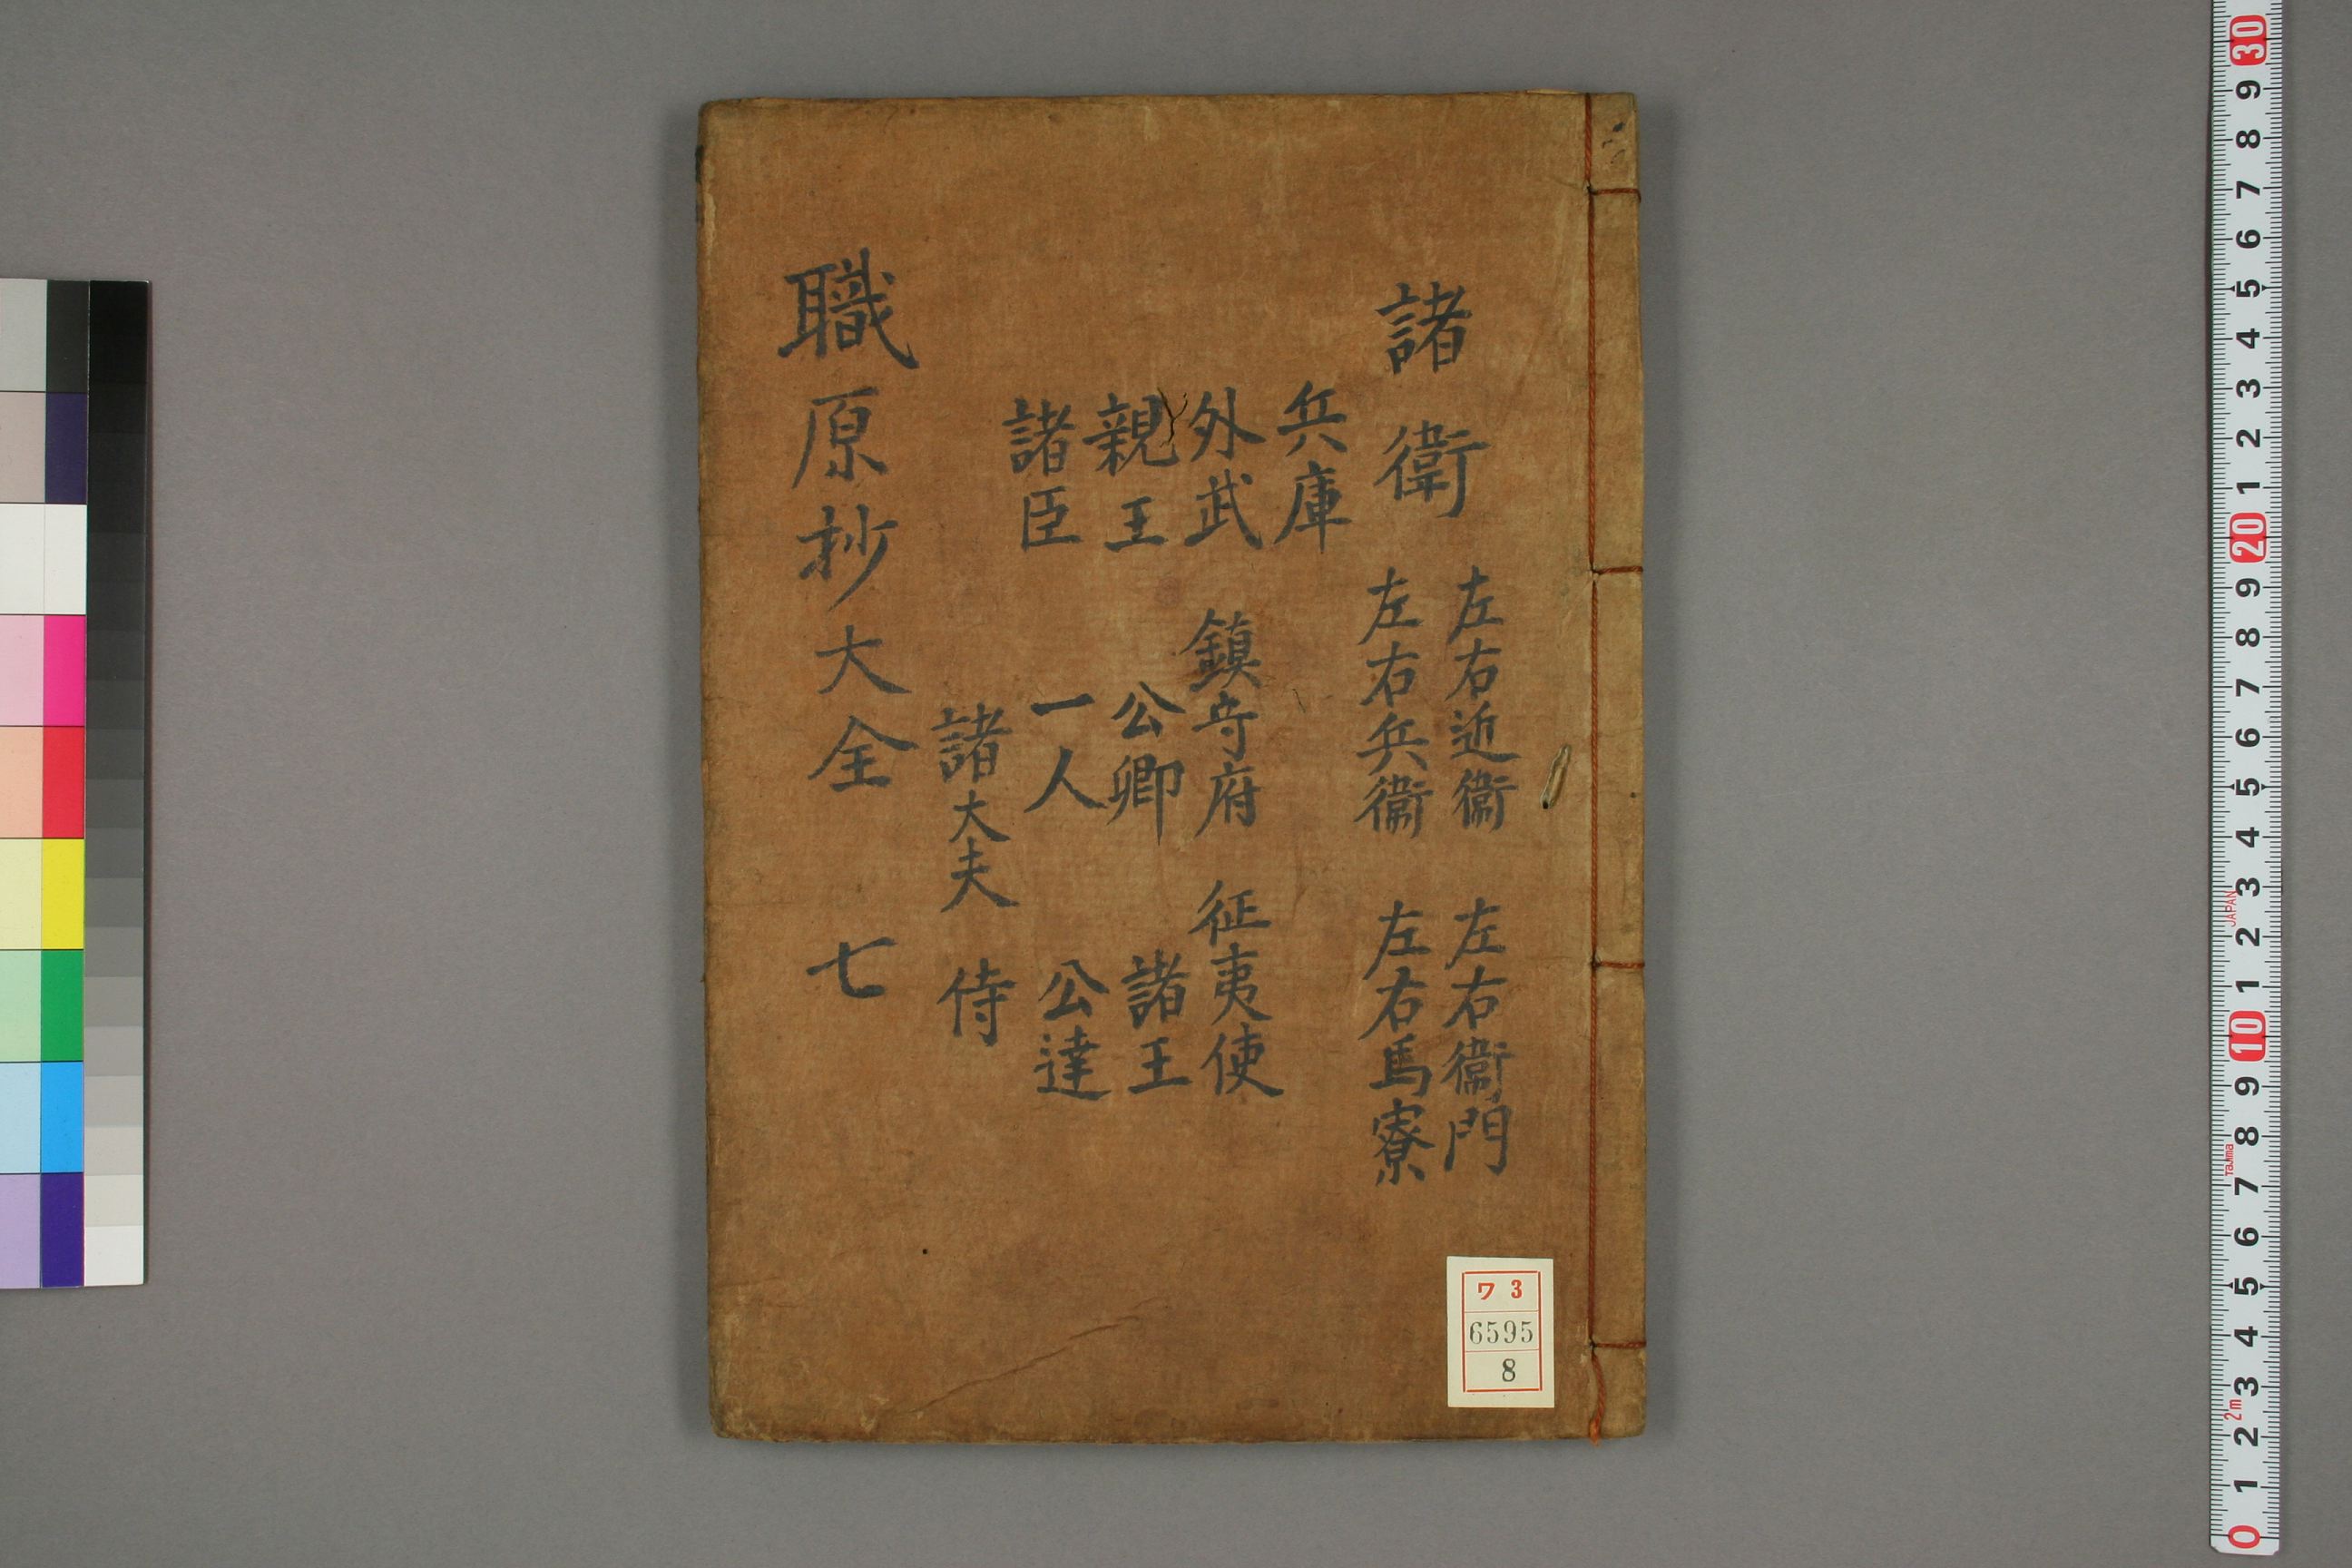 諸衛
左右近衛 左右衛門
左右兵衛 左右馬寮
兵庫
外武 鎮守府 征夷使
親王 公卿 諸王
諸臣 一人 公達
諸大夫 侍
職原抄大全 七
ワ 3
6595
8
30
9
8
7
6
5
4
3
2
1
20
9
8
7
6
5
4
3
JAPAN
2
1
10
9
8
Tajima
7
6
5
4
3
2m
2
1
0